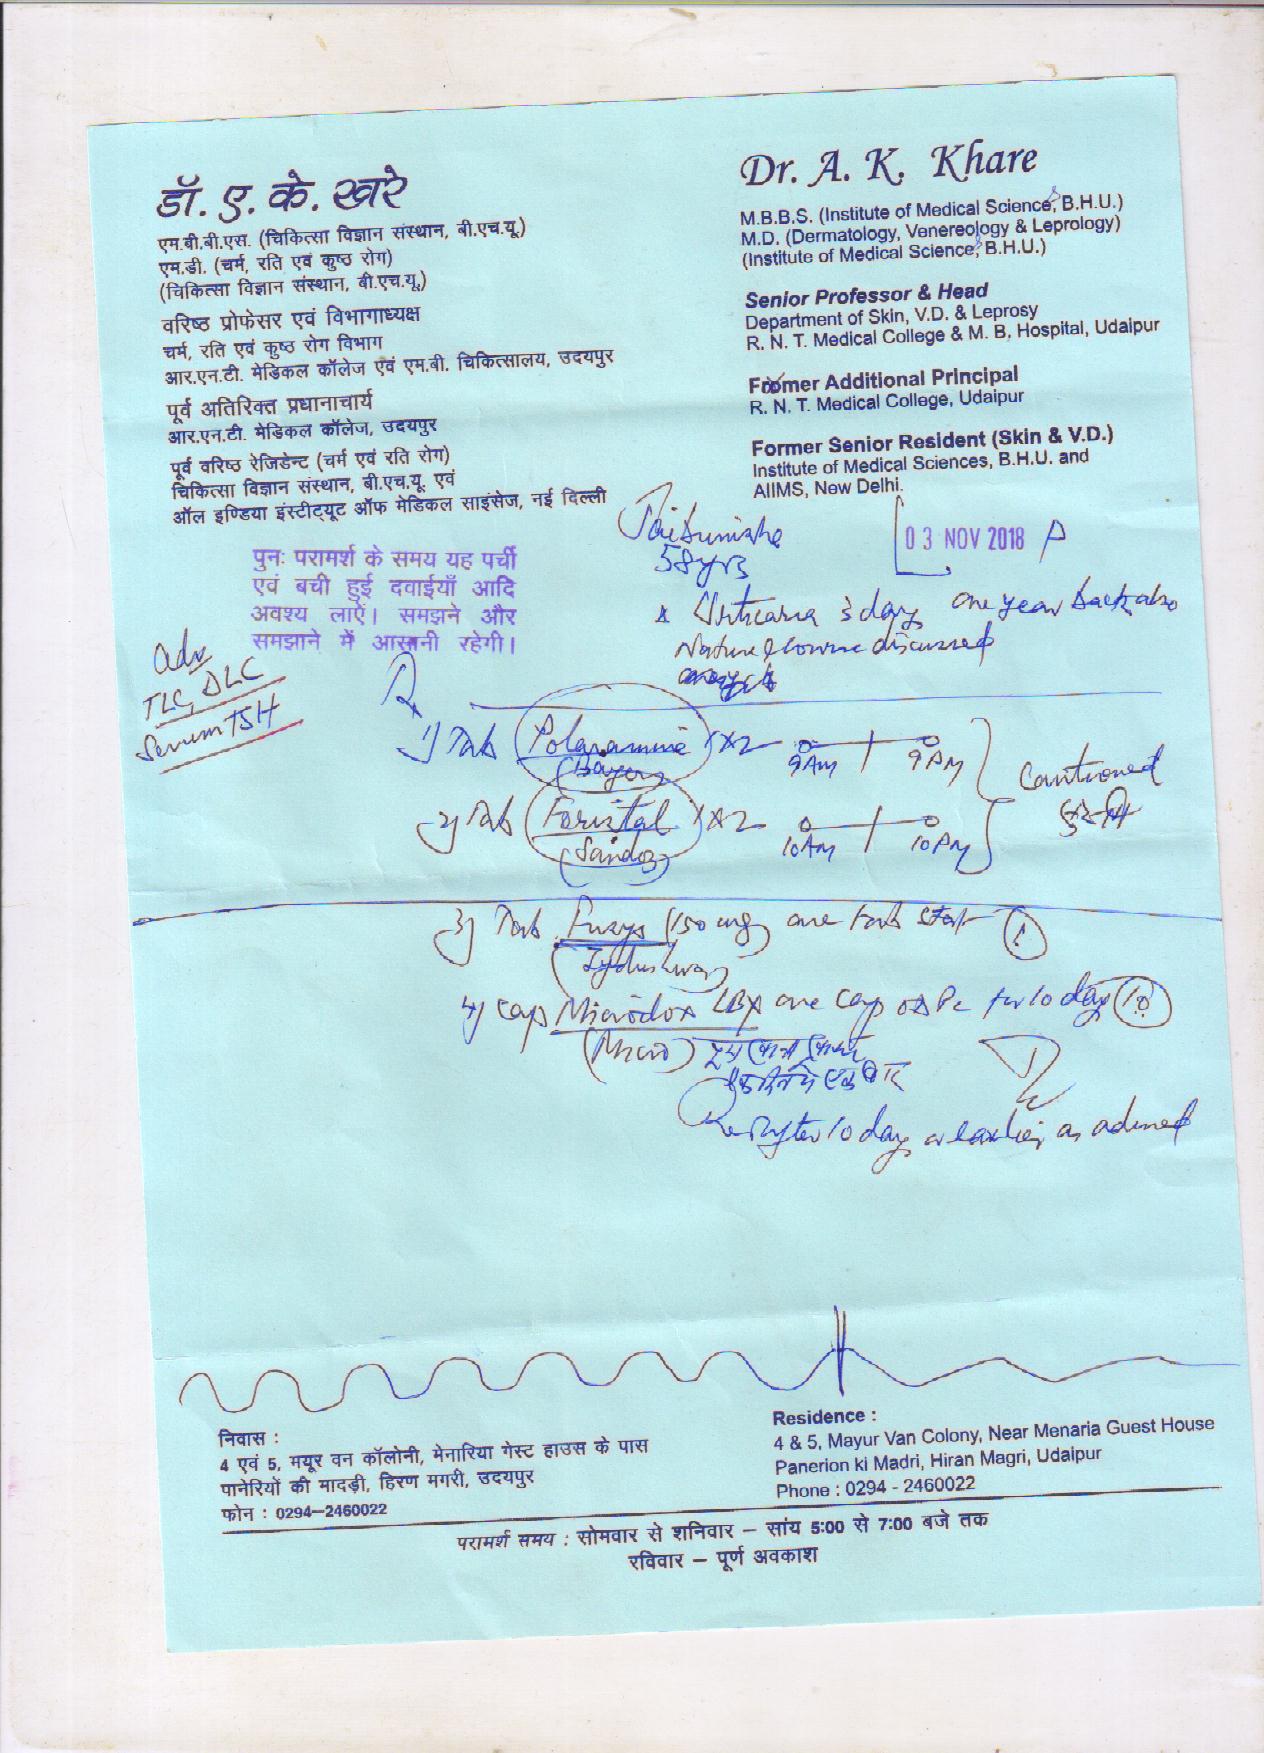 डॉ. ए. के. खरे
एम.बी.बी.एस. (चिकित्सा विज्ञान संस्थान, बी.एच.यू.)
एम.डी. (चर्म, रति एवं कुष्ठ रोग)
(चिकित्सा विज्ञान संस्थान, बी.एच.यू.)
वरिष्ठ प्रोफेसर एवं विभागाध्यक्ष
चर्म, रति एवं कुष्ठ रोग विभाग
आर.एन.टी. मेडिकल कॉलेज एवं एम.बी. चिकित्सालय, उदयपुर
पूर्व अतिरिक्त प्रधानाचार्य
आर.एन.टी. मेडिकल कॉलेज, उदयपुर
पूर्व वरिष्ठ रेजिडेन्ट (चर्म एवं रति रोग)
चिकित्सा विज्ञान संस्थान, बी.एच.यू. एवं
ऑल इण्डिया इंस्टीट्यूट ऑफ मेडिकल साइंसेज, नई दिल्ली
Dr. A. K. Khare
M.B.B.S. (Institute of Medical Sciences, B.H.U.)
M.D. (Dermatology, Venereology & Leprology)
(Institute of Medical Sciences, B.H.U.)
Senior Professor & Head
Department of Skin, V.D. & Leprosy
R. N. T. Medical College & M. B. Hospital, Udaipur
Former Additional Principal
R. N. T. Medical College, Udaipur
Former Senior Resident (Skin & V.D.)
Institute of Medical Sciences, B.H.U. and
AIIMS, New Delhi.
पुनः परामर्श के समय यह पर्ची
एवं बची हुई दवाईयाँ आदि
अवश्य लाऐं। समझने और
समझाने में आसानी रहेगी।
03 NOV 2018
58 yrs
Urticaria 3 day one year back also
Nature & course discussed
Adv
TLC, DLC
Serum TSH
Rx
1) Tab Polaramine 1x2 9 AM 9 PM
(Bayer)
Cautioned
2) Tab Foristal 1x2 10 AM 10 PM
(Sandoz)
3) Tab (150 mg) one tab stat
4) Cap Microdox LBX one cap OD PC for 10 days (10)
(Micro)
after 10 days or earlier as advised
निवास :
4 एवं 5, मयूर वन कॉलोनी, मेनारिया गेस्ट हाउस के पास
पानेरियों की मादड़ी, हिरण मगरी, उदयपुर
फोन : 0294-2460022
Residence :
4 & 5, Mayur Van Colony, Near Menaria Guest House
Panerion ki Madri, Hiran Magri, Udaipur
Phone : 0294 - 2460022
परामर्श समय : सोमवार से शनिवार – सांय 5:00 से 7:00 बजे तक
रविवार – पूर्ण अवकाश